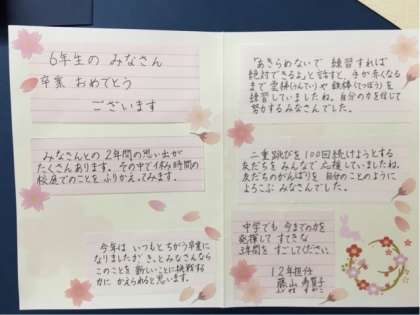 6年生の みなさん
卒業 おめでとう
ございます
みなさんとの 2年間の思い出が
たくさんあります。その中で休み時間の
校庭でのことを ふりかえってみます。
今年は いつもと ちがう卒業に
なりましたが、きっとみなさんなら
このことを 新しいことに挑戦する
力に かえられると思います。
「あきらめないで 練習すれば
絶対できるよ」と話すと、手が赤くなる
まで 雲梯(うんてい)や 鉄棒(てつぼう)を
練習していましたね。自分の力を信じて
努力するみなさんでした。
二重跳びを 100回続けようとする
友だちを みんなで応援していましたね。
友だちのがんばりを 自分のことのように
よろこぶ みなさんでした。
中学でも 今までの力を
発揮して すてきな
3年間を すごしてください。
1 2年担任